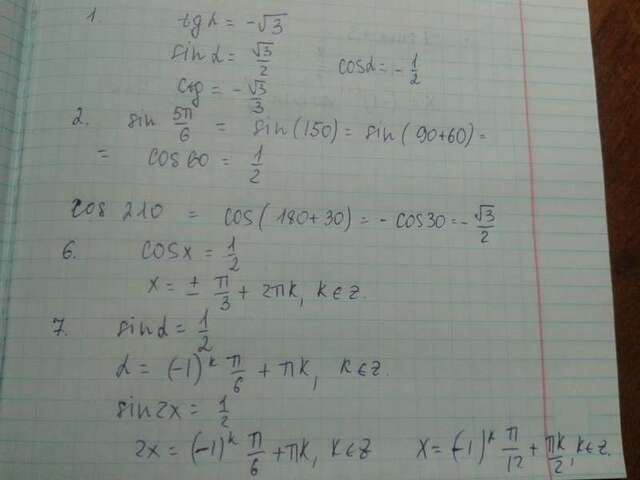 1. tg α = -√3
sin α = √3/2 cos α = - 1/2
ctg = - √3/3
2. sin 5π/6 = sin(150) = sin(90+60) =
= cos 60 = 1/2
cos 210 = cos(180+30) = - cos 30 = - √3/2
6. cos x = 1/2
x = ± π/3 + 2πk, k ∈ z.
7. sin α = 1/2
α = (-1)^k π/6 + πk, k ∈ z.
sin 2x = 1/2
2x = (-1)^k π/6 + πk, k ∈ z x = (-1)^k π/12 + πk/2, k ∈ z.